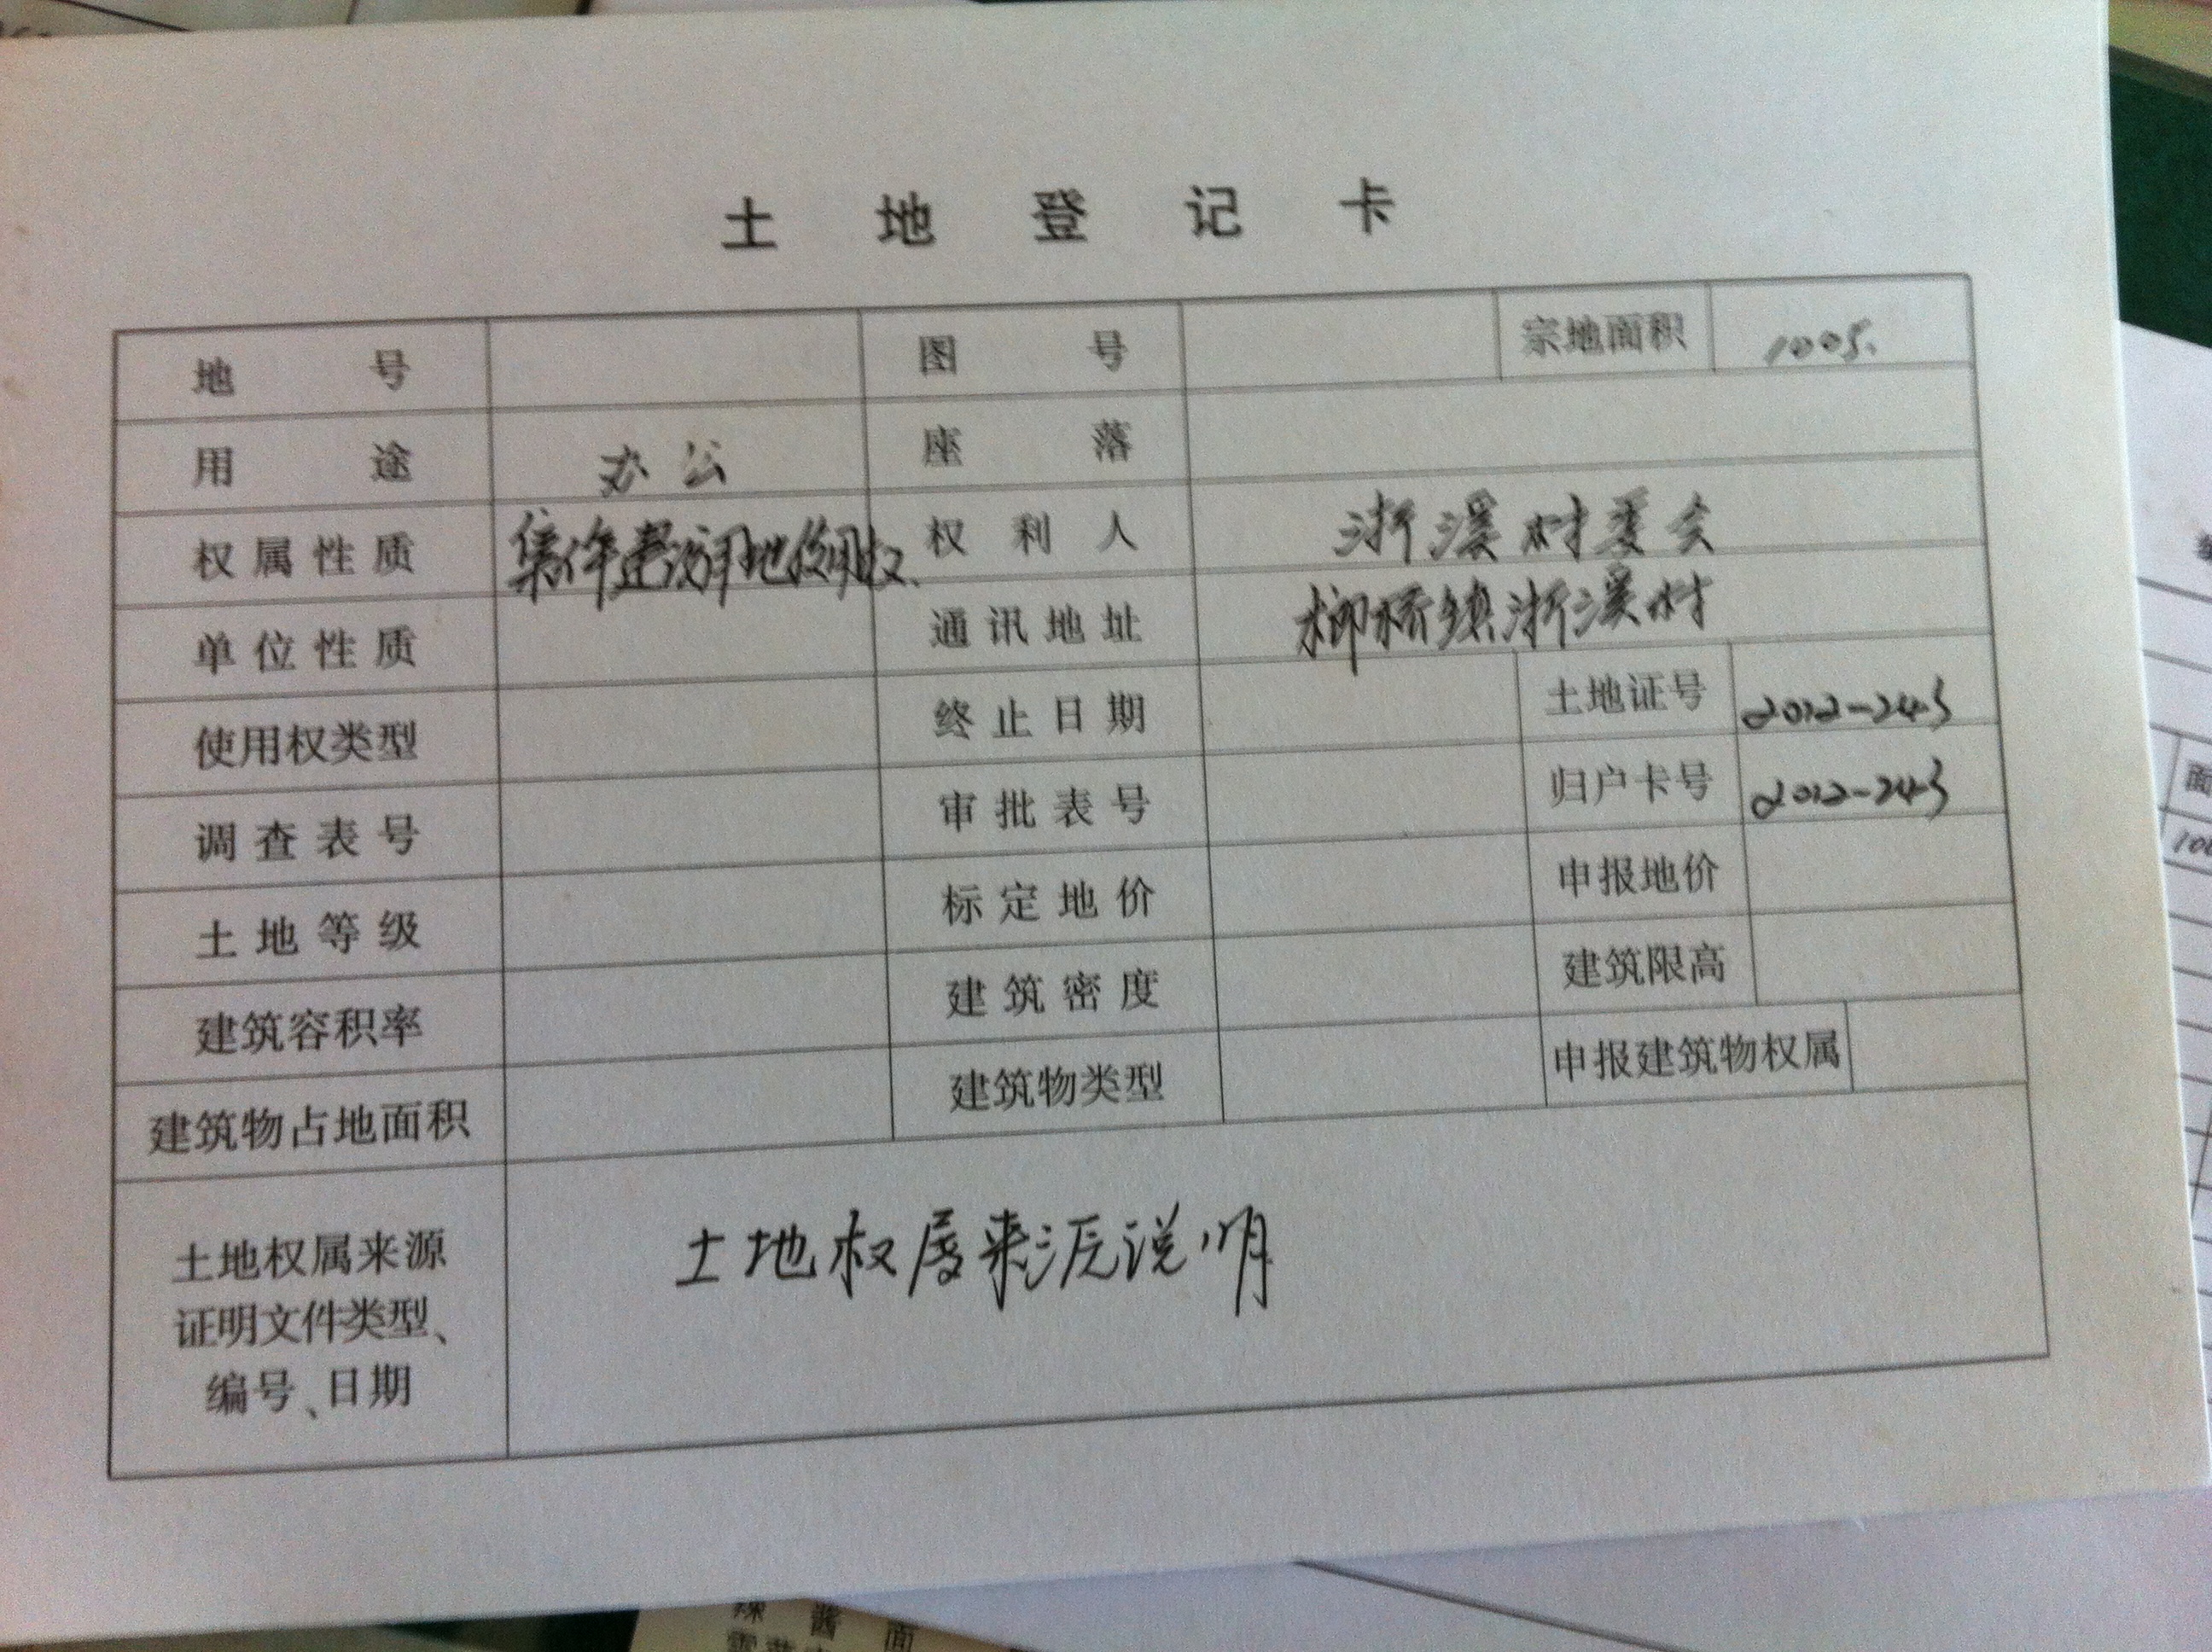 土地登记卡
地号 图号 宗地面积 1005.
用途 办公 座落
权属性质 集体建设用地使用权. 权利人 浙溪村委会
单位性质 通讯地址 榔桥镇浙溪村
使用权类型 终止日期 土地证号 2012-243
调查表号 审批表号 归户卡号 2012-243
土地等级 标定地价 申报地价
建筑容积率 建筑密度 建筑限高
建筑物占地面积 建筑物类型 申报建筑物权属
土地权属来源
证明文件类型、
编号、日期
土地权属来源说明
面
100
辣酱面